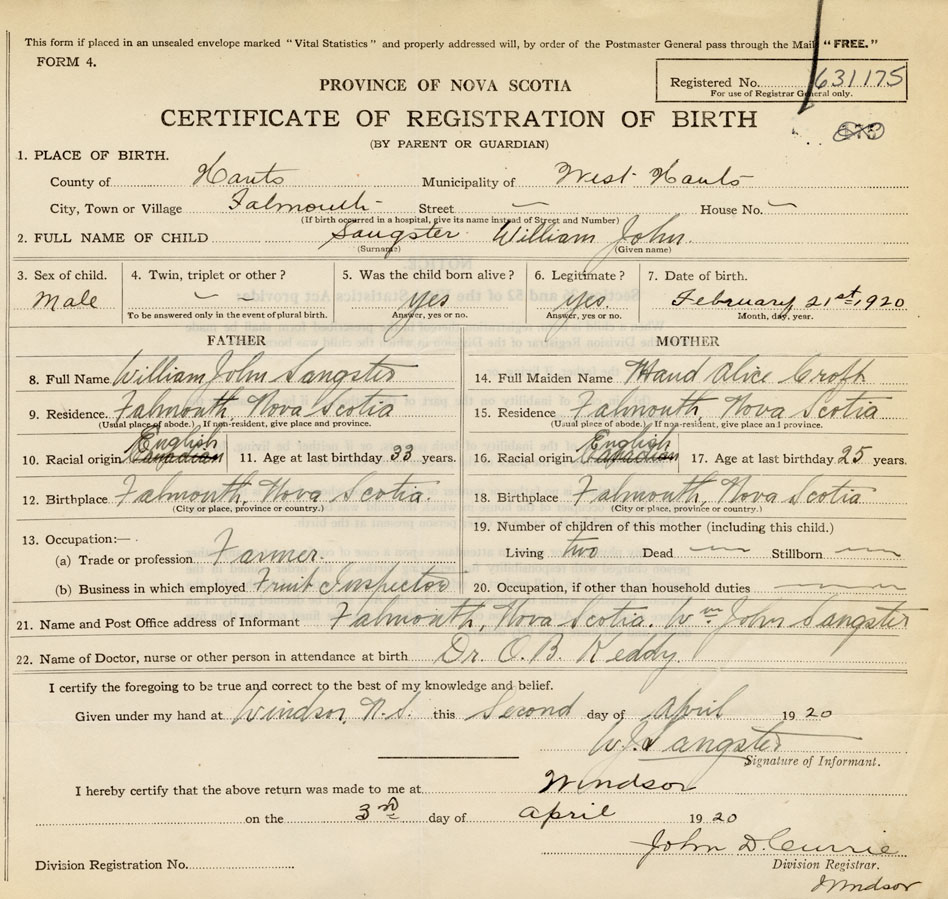 This form if placed in an unsealed envelope marked "Vital Statistics" and properly addressed will, by order of the Postmaster General pass through the Mail "FREE."
FORM 4.
Registered No. 631175
For use of Registrar General only.
PROVINCE OF NOVA SCOTIA
CERTIFICATE OF REGISTRATION OF BIRTH
(BY PARENT OR GUARDIAN)
1. PLACE OF BIRTH.
County of Hants Municipality of West Hants
City, Town or Village Falmouth Street — House No. —
(If birth occurred in a hospital, give its name instead of Street and Number)
2. FULL NAME OF CHILD Sangster William John.
(Surname) (Given name)
3. Sex of child. 4. Twin, triplet or other? 5. Was the child born alive? 6. Legitimate? 7. Date of birth.
Male — — yes yes. February 21st, 1920
To be answered only in the event of plural birth. Answer, yes or no. Answer, yes or no. Month, day, year.
FATHER MOTHER
8. Full Name William John Sangster 14. Full Maiden Name Maud Alice Croft
9. Residence. Falmouth, Nova Scotia 15. Residence Falmouth, Nova Scotia
(Usual place of abode.) If non-resident, give place and province. (Usual place of abode.) If non-resident, give place and province.
English English
10. Racial origin Canadian 11. Age at last birthday 33 years. 16. Racial origin Canadian 17. Age at last birthday 25 years.
12. Birthplace Falmouth, Nova Scotia. 18. Birthplace Falmouth, Nova Scotia
(City or place, province or country.) (City or place, province or country.)
19. Number of children of this mother (including this child.)
13. Occupation:—
(a) Trade or profession Farmer. Living two Dead — Stillborn —
(b) Business in which employed Fruit Inspector 20. Occupation, if other than household duties —
21. Name and Post Office address of Informant Falmouth, Nova Scotia. Wm John Sangster
22. Name of Doctor, nurse or other person in attendance at birth Dr. O. B. Keddy.
I certify the foregoing to be true and correct to the best of my knowledge and belief.
Given under my hand at Windsor, N.S. this Second day of April 1920
W.J. Sangster
Signature of Informant.
I hereby certify that the above return was made to me at Windsor
on the 3rd day of April 1920
John D. Currie
Division Registration No. Division Registrar.
Windsor